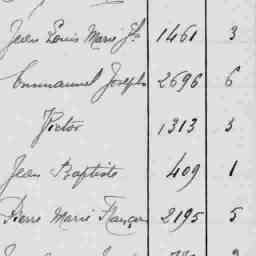 Jean Louis Marie Js 1461 3
Emmanuel Joseph 2696 6
Victor 1313 3
Jean Baptiste 409 1
Pierre Marie François 2195 5